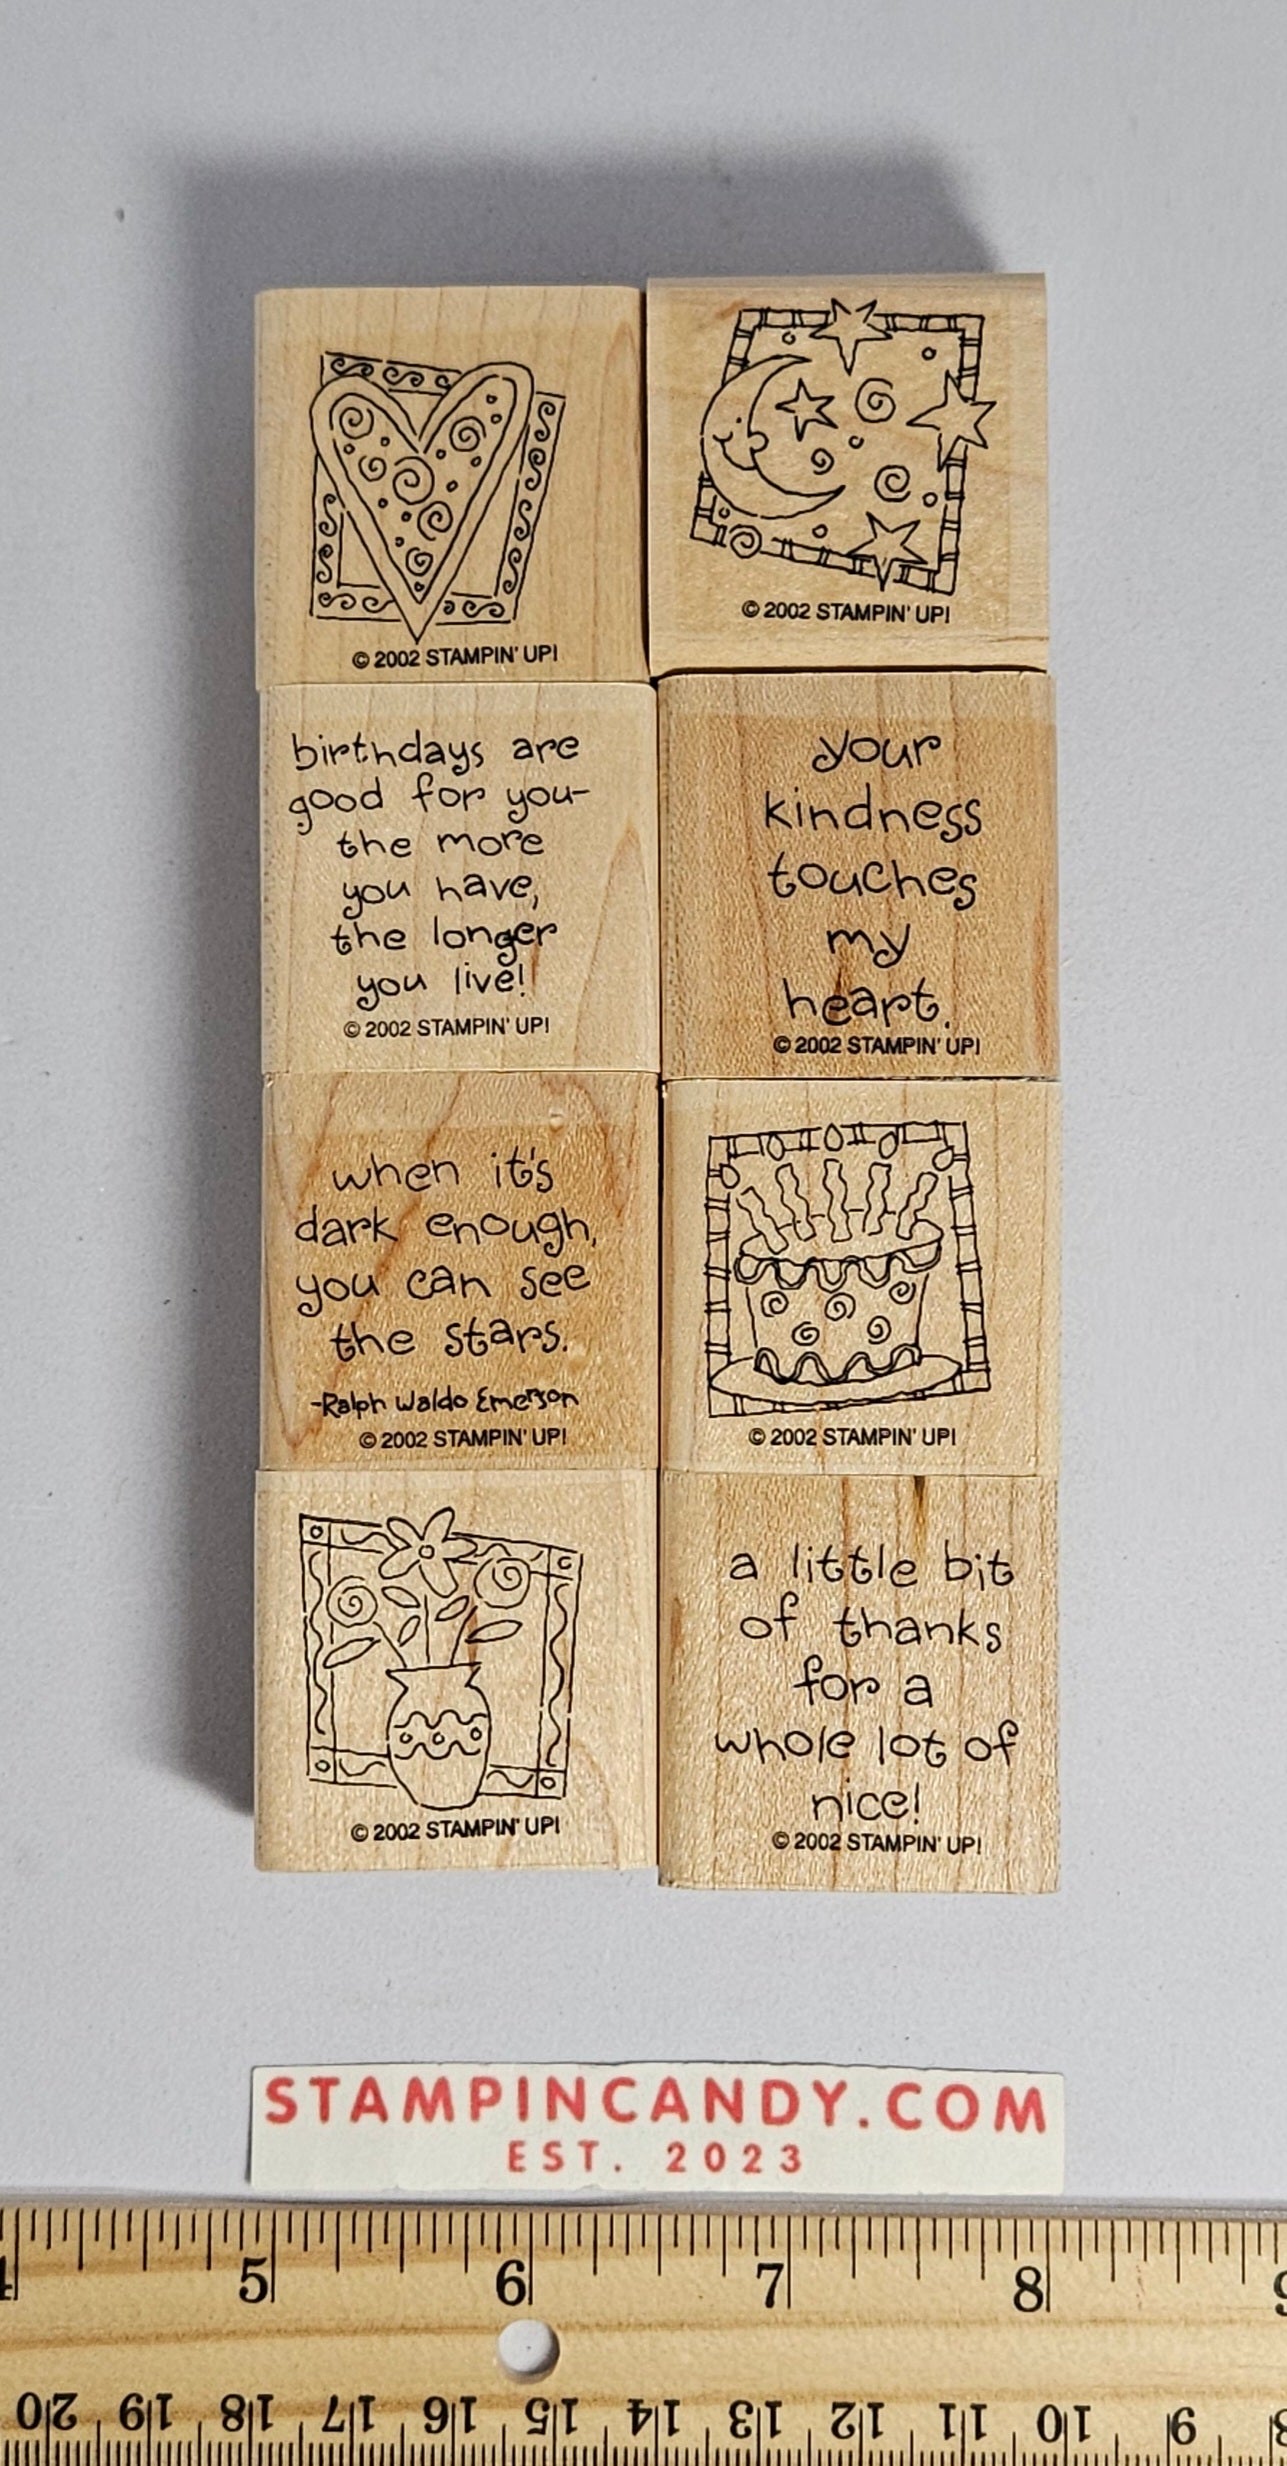 © 2002 STAMPIN' UP!
© 2002 STAMPIN' UP!
birthdays are
good for you-
the more
you have,
the longer
you live!
© 2002 STAMPIN' UP!
your
kindness
touches
my
heart.
© 2002 STAMPIN' UP!
when it's
dark enough,
you can see
the stars.
-Ralph Waldo Emerson
© 2002 STAMPIN' UP!
© 2002 STAMPIN' UP!
© 2002 STAMPIN' UP!
a little bit
of thanks
for a
whole lot of
nice!
© 2002 STAMPIN' UP!
STAMPINCANDY.COM
EST. 2023
4 5 6 7 8 9
20 19 18 17 16 15 14 13 12 11 10 9 8